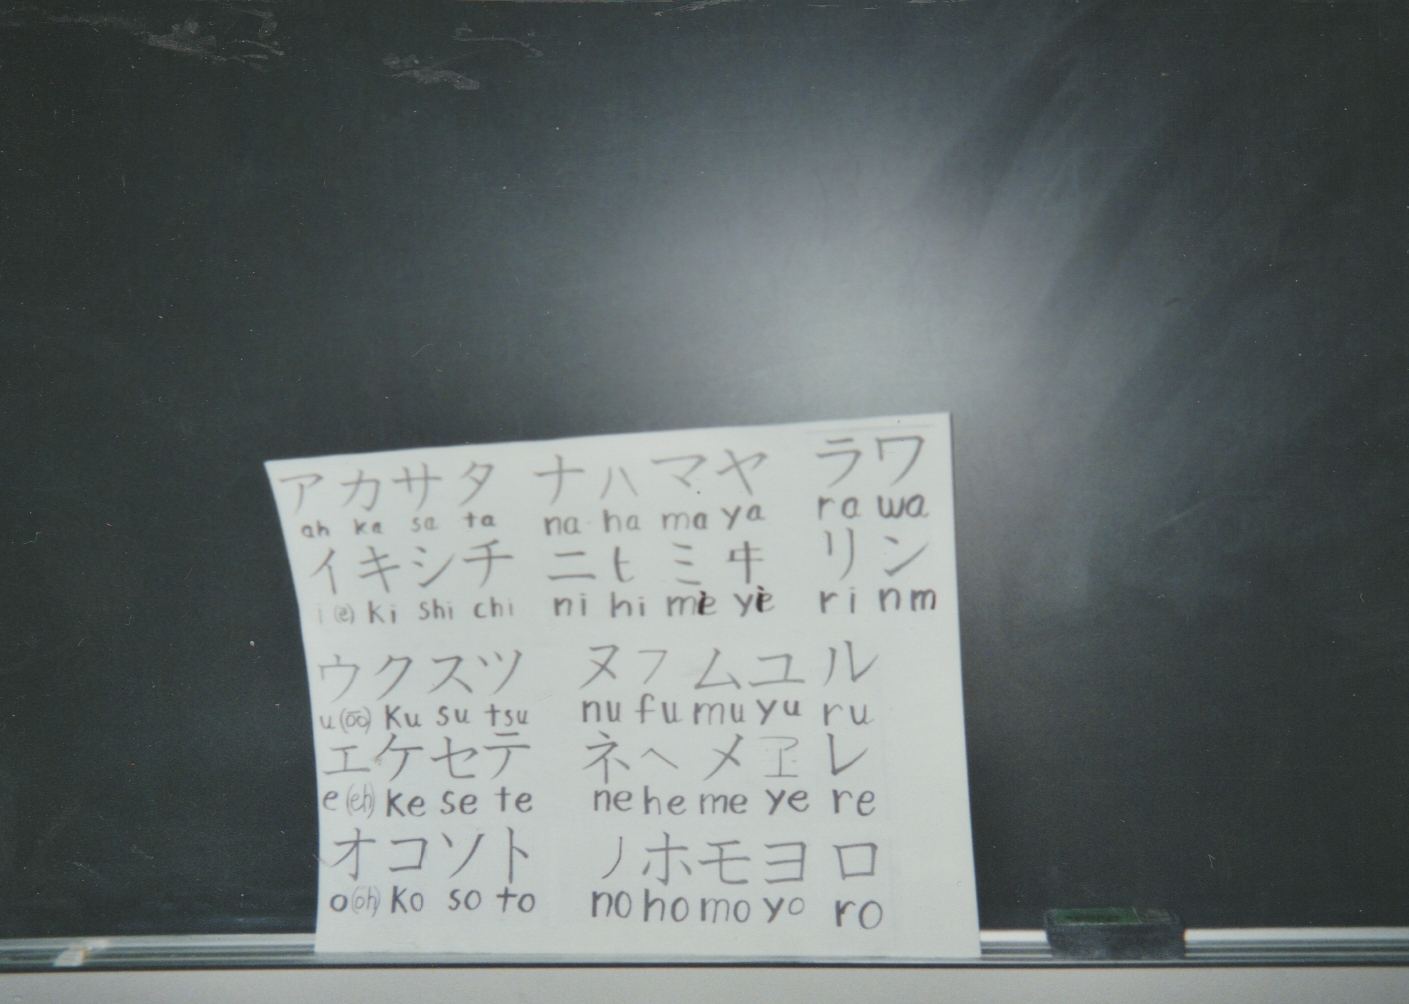 アカサタ ナハマヤ ラワ
ah ka sa ta na ha ma ya ra wa
イキシチ ニヒミヰ リン
i (e) ki shi chi ni hi me ye ri nm
ウクスツ ヌフムユ ル
u (oo) ku su tsu nu fu mu yu ru
エケセテ ネヘメヱ レ
e (eh) ke se te ne he me ye re
オコソト ノホモヨ ロ
o (oh) ko so to no ho mo yo ro